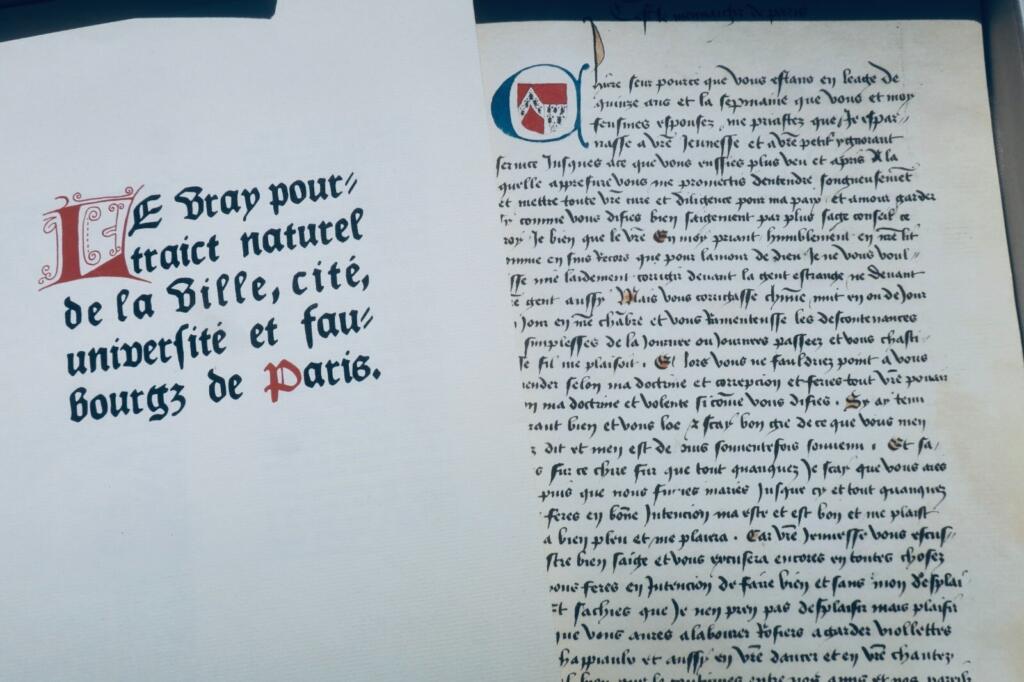 LE Vray pour-
traict naturel
de la Ville, cité,
université et fau-
bourgz de Paris.
Chiere seur pource que vous estans en leage de
quinze ans et la sepmaine que vous et moy
feusmes espousez me priastez que Je espar-
nasse a vr̄e Jeunesse et a vr̄e petit ygnorant
service Jusques ace que vous eussies plus veu et apris A la
quelle vous me promectis dentendre songneusement
et mettre toute vr̄e cure et diligence pour ma paix et amour garder
comme vous disies bien saigement par plus sage conseil ce
roy Je bien que le vr̄e En moy priant humblement en nr̄e lit
que pour lamour de dieu Je ne vous voul-
laidement corrigier devant la gent estrange ne devant
gent aussy Mais vous corrigasse chūne nuit ou de Jour
Jour en nr̄e chābre et vous Ramenteusse les descontenances
simplesses de la Journee ou Journees passees et vous chasti-
se fil me plaisoit . Et lors vous ne fauldriez point a vous
selon ma doctrine et correpcion et feries tout vr̄e pouair
ma doctrine et volente si cōme vous disies . Sy ay tenu
bien et vous loe & scay bon gre de ce que vous men
dit et men est de puis souventesfois souvenu . Et sa-
sur ce chiere seur que tout quanquez Je scay que vous aves
puis que nous mariés Jusque cy et tout quanquez
feres en bōne Intencion ma este et est bon et me plaist
a bien pleu et me plaira . Car vr̄e Jeunesse vous escus-
bien saige et vous excusera encores en toutes chosez
vous feres en Intencion de faire bien et sans mon desplai
sachies que Je nen pren pas desplaisir mais plaisir
que vous aures a labourer Rosiers a garder violettes
et aussy en vr̄e dancer et en vr̄e chantez
bien que le entre nos amis et nos